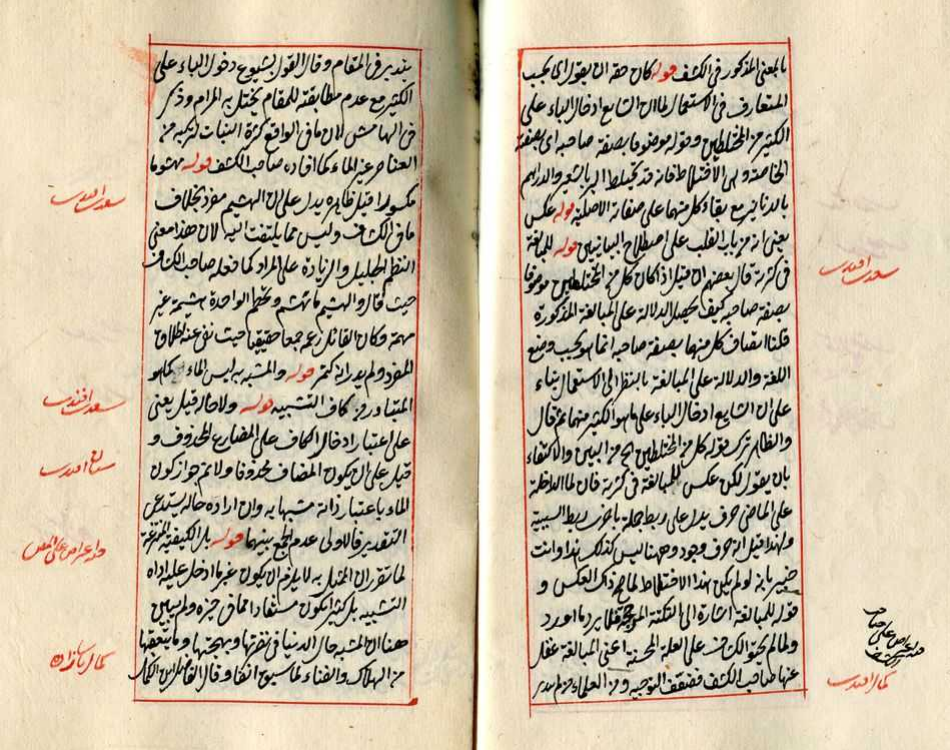 بالمعنى المذكور في الكشف قوله كان حقه ان يقول اى بحسب
المتعارف في الاستعمال لما ان الشايع ادخال الباء على
الكثير من المختلطين وقوله موصوفا بصفة صاحبه اى بصفته
الخاصة وهى الاختلاط فانه قد يختلط البر بالشعير والدراهم
بالدنانير مع بقاء كل منهما على صفاته الاصلية قوله عكس
يعنى انه من باب القلب على اصطلاح البيانيين قوله للمبالغة
في كثرته قال بعضهم ان قيل اذا كان كل من المختلطين موصوفا
بصفة صاحبه كيف يحصل الدلالة على المبالغة المذكورة
قلنا اتصاف كل منهما بصفة صاحبه انما هو بحسب وضع
اللغة والدلالة على المبالغة بالنظر الى الاستعمال بناء
على ان الشايع ادخال الباء على ما هو الكثير منهما ثم قال
والظاهر ترك قوله كل من المختلطين الخ من البين والاكتفاء
بان يقول لكن عكس للمبالغة في كثرته فان لما الداخلة
على الماضى حرف يدل على ربط جملة باخرى ربط السببية
ولهذا قيل انه حرف وجود وههنا ليس كذلك هذا وانت
خبير بانه لو لم يكن هذا الاختلاط لما صح ذلك العكس و
قوله للمبالغة اشارة الى النكتة المرجحة فلا يرد ما اورد
ولما لم يحتو الكشف على العلة المحسنة اعنى المبالغة غفل
عنها صاحب الكشف فضعف التوجيه ومن العلماء من لم يتدبر
سعدى افندى
كمال افندى
يتدبر في المقام وقال القول بشيوع دخول الباء على
الكثير مع عدم مطابقته للمقام يختل به المرام وذكر
في الهامش لان ما في الواقع كثرة النبات لتركبه من
العناصر غير الماء كما افاده صاحب الكشف قوله مهشوما
مكسورا قيل ظاهره يدل على ان الهشيم مفرد بخلاف
ما في الكشاف وليس مما يلتفت اليه لان هذا معنى
النظم الجليل والزيادة على المراد كما فعله صاحب الكشاف
حيث قال والهشيم ما تهشم وتحطم الواحدة هشيمة غير
مهمة وكان القائل زعم جمعا حقيقيا حيث نفى عنه اطلاق
المفرد ولم يدر انه كتمر قوله والمشبه به ليس الماء كما هو
المتبادر من كاف التشبيه قوله ولا حاله قيل يعنى
على اعتبار ادخال الكاف على المضاف المحذوف و
قيل على ان يكون المضاف محذوفا ولا ثم جواز كون
الماء باعتبار ذاته مشبها به وان اراده حاله يستدعى
التقدير فالاولى عدم الجمع بينهما قوله بل الكيفية المنتزعة
لما تقرر ان المثل به لا يلزم ان يكون عين ما ادخل عليه اداة
التشبيه بل كثيرا يكون مستفادا مما في حيزه ولم يبين
هنا ان المشبه حال الدنيا في نضرتها وبهجتها وما يتعقبها
من الهلاك والفناء لما سيق انفا وقال الفاضل ابن الكمال
سعدى افندى
سعدى افندى
سنان افندى
كمال پاشا زاده